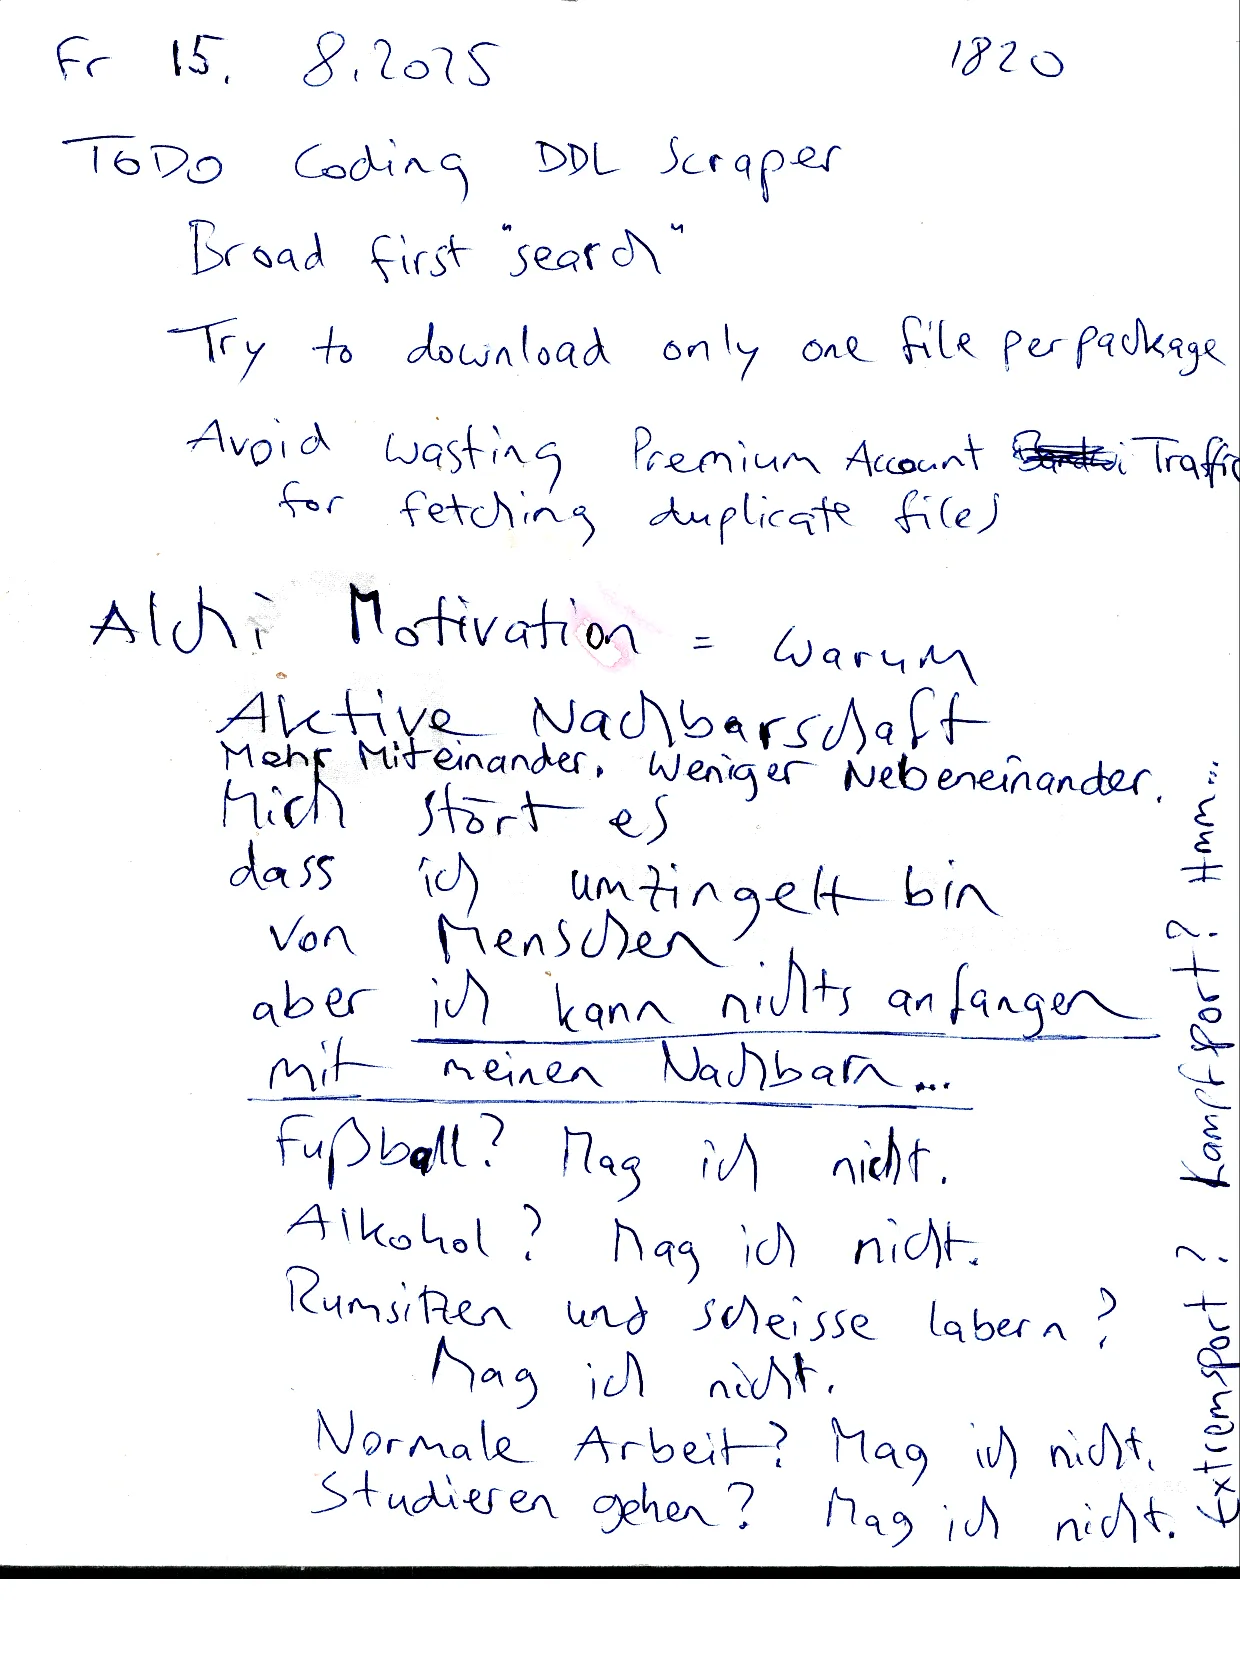 Fr 15. 8.2025 1820
TODO Coding DDL Scraper
Broad first "search"
Try to download only one file per package
Avoid wasting Premium Account Traffic
for fetching duplicate files
Alchi Motivation = Warum
Aktive Nachbarschaft
Mehr Miteinander. Weniger Nebeneinander.
Mich stört es
dass ich umzingelt bin
von Menschen
aber ich kann nichts anfangen
mit meinen Nachbarn...
Fußball? Mag ich nicht.
Alkohol? Mag ich nicht.
Rumsitzen und scheisse labern?
Mag ich nicht.
Normale Arbeit? Mag ich nicht.
Studieren gehen? Mag ich nicht.
Extremsport? Kampfsport? Hmm...